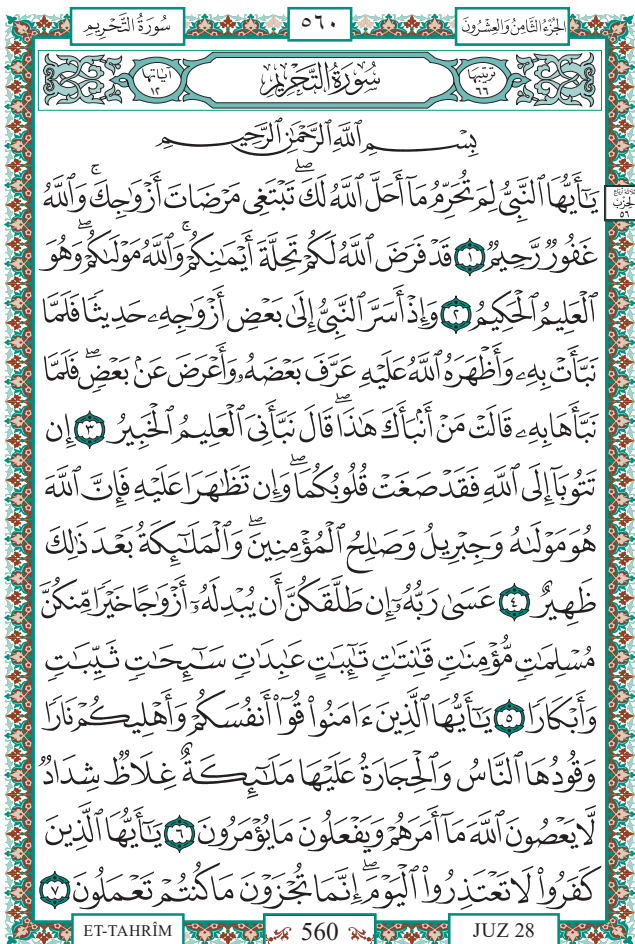 سُورَةُ التَّحْرِيمِ ٥٦٠ الجُزْءُ الثَّامِنُ وَالعِشْرُونَ
تَرْتِيبُهَا ٦٦ سُورَةُ التَّحْرِيمِ آيَاتُهَا ١٢
بِسْمِ ٱللَّهِ ٱلرَّحْمَٰنِ ٱلرَّحِيمِ
يَٰٓأَيُّهَا ٱلنَّبِىُّ لِمَ تُحَرِّمُ مَآ أَحَلَّ ٱللَّهُ لَكَ ۖ تَبْتَغِى مَرْضَاتَ أَزْوَٰجِكَ ۚ وَٱللَّهُ
غَفُورٌ رَّحِيمٌ ١ قَدْ فَرَضَ ٱللَّهُ لَكُمْ تَحِلَّةَ أَيْمَٰنِكُمْ ۚ وَٱللَّهُ مَوْلَىٰكُمْ ۖ وَهُوَ
ٱلْعَلِيمُ ٱلْحَكِيمُ ٢ وَإِذْ أَسَرَّ ٱلنَّبِىُّ إِلَىٰ بَعْضِ أَزْوَٰجِهِۦ حَدِيثًا فَلَمَّا
نَبَّأَتْ بِهِۦ وَأَظْهَرَهُ ٱللَّهُ عَلَيْهِ عَرَّفَ بَعْضَهُۥ وَأَعْرَضَ عَنۢ بَعْضٍ ۖ فَلَمَّا
نَبَّأَهَا بِهِۦ قَالَتْ مَنْ أَنۢبَأَكَ هَٰذَا ۖ قَالَ نَبَّأَنِىَ ٱلْعَلِيمُ ٱلْخَبِيرُ ٣ إِن
تَتُوبَآ إِلَى ٱللَّهِ فَقَدْ صَغَتْ قُلُوبُكُمَا ۖ وَإِن تَظَٰهَرَا عَلَيْهِ فَإِنَّ ٱللَّهَ
هُوَ مَوْلَىٰهُ وَجِبْرِيلُ وَصَٰلِحُ ٱلْمُؤْمِنِينَ ۖ وَٱلْمَلَٰٓئِكَةُ بَعْدَ ذَٰلِكَ
ظَهِيرٌ ٤ عَسَىٰ رَبُّهُۥٓ إِن طَلَّقَكُنَّ أَن يُبْدِلَهُۥٓ أَزْوَٰجًا خَيْرًا مِّنكُنَّ
مُسْلِمَٰتٍ مُّؤْمِنَٰتٍ قَٰنِتَٰتٍ تَٰٓئِبَٰتٍ عَٰبِدَٰتٍ سَٰٓئِحَٰتٍ ثَيِّبَٰتٍ
وَأَبْكَارًا ٥ يَٰٓأَيُّهَا ٱلَّذِينَ ءَامَنُوا۟ قُوٓا۟ أَنفُسَكُمْ وَأَهْلِيكُمْ نَارًا
وَقُودُهَا ٱلنَّاسُ وَٱلْحِجَارَةُ عَلَيْهَا مَلَٰٓئِكَةٌ غِلَاظٌ شِدَادٌ
لَّا يَعْصُونَ ٱللَّهَ مَآ أَمَرَهُمْ وَيَفْعَلُونَ مَا يُؤْمَرُونَ ٦ يَٰٓأَيُّهَا ٱلَّذِينَ
كَفَرُوا۟ لَا تَعْتَذِرُوا۟ ٱلْيَوْمَ ۖ إِنَّمَا تُجْزَوْنَ مَا كُنتُمْ تَعْمَلُونَ ٧
الحِزْبُ
٥٦
ET-TAHRÎM 560 JUZ 28